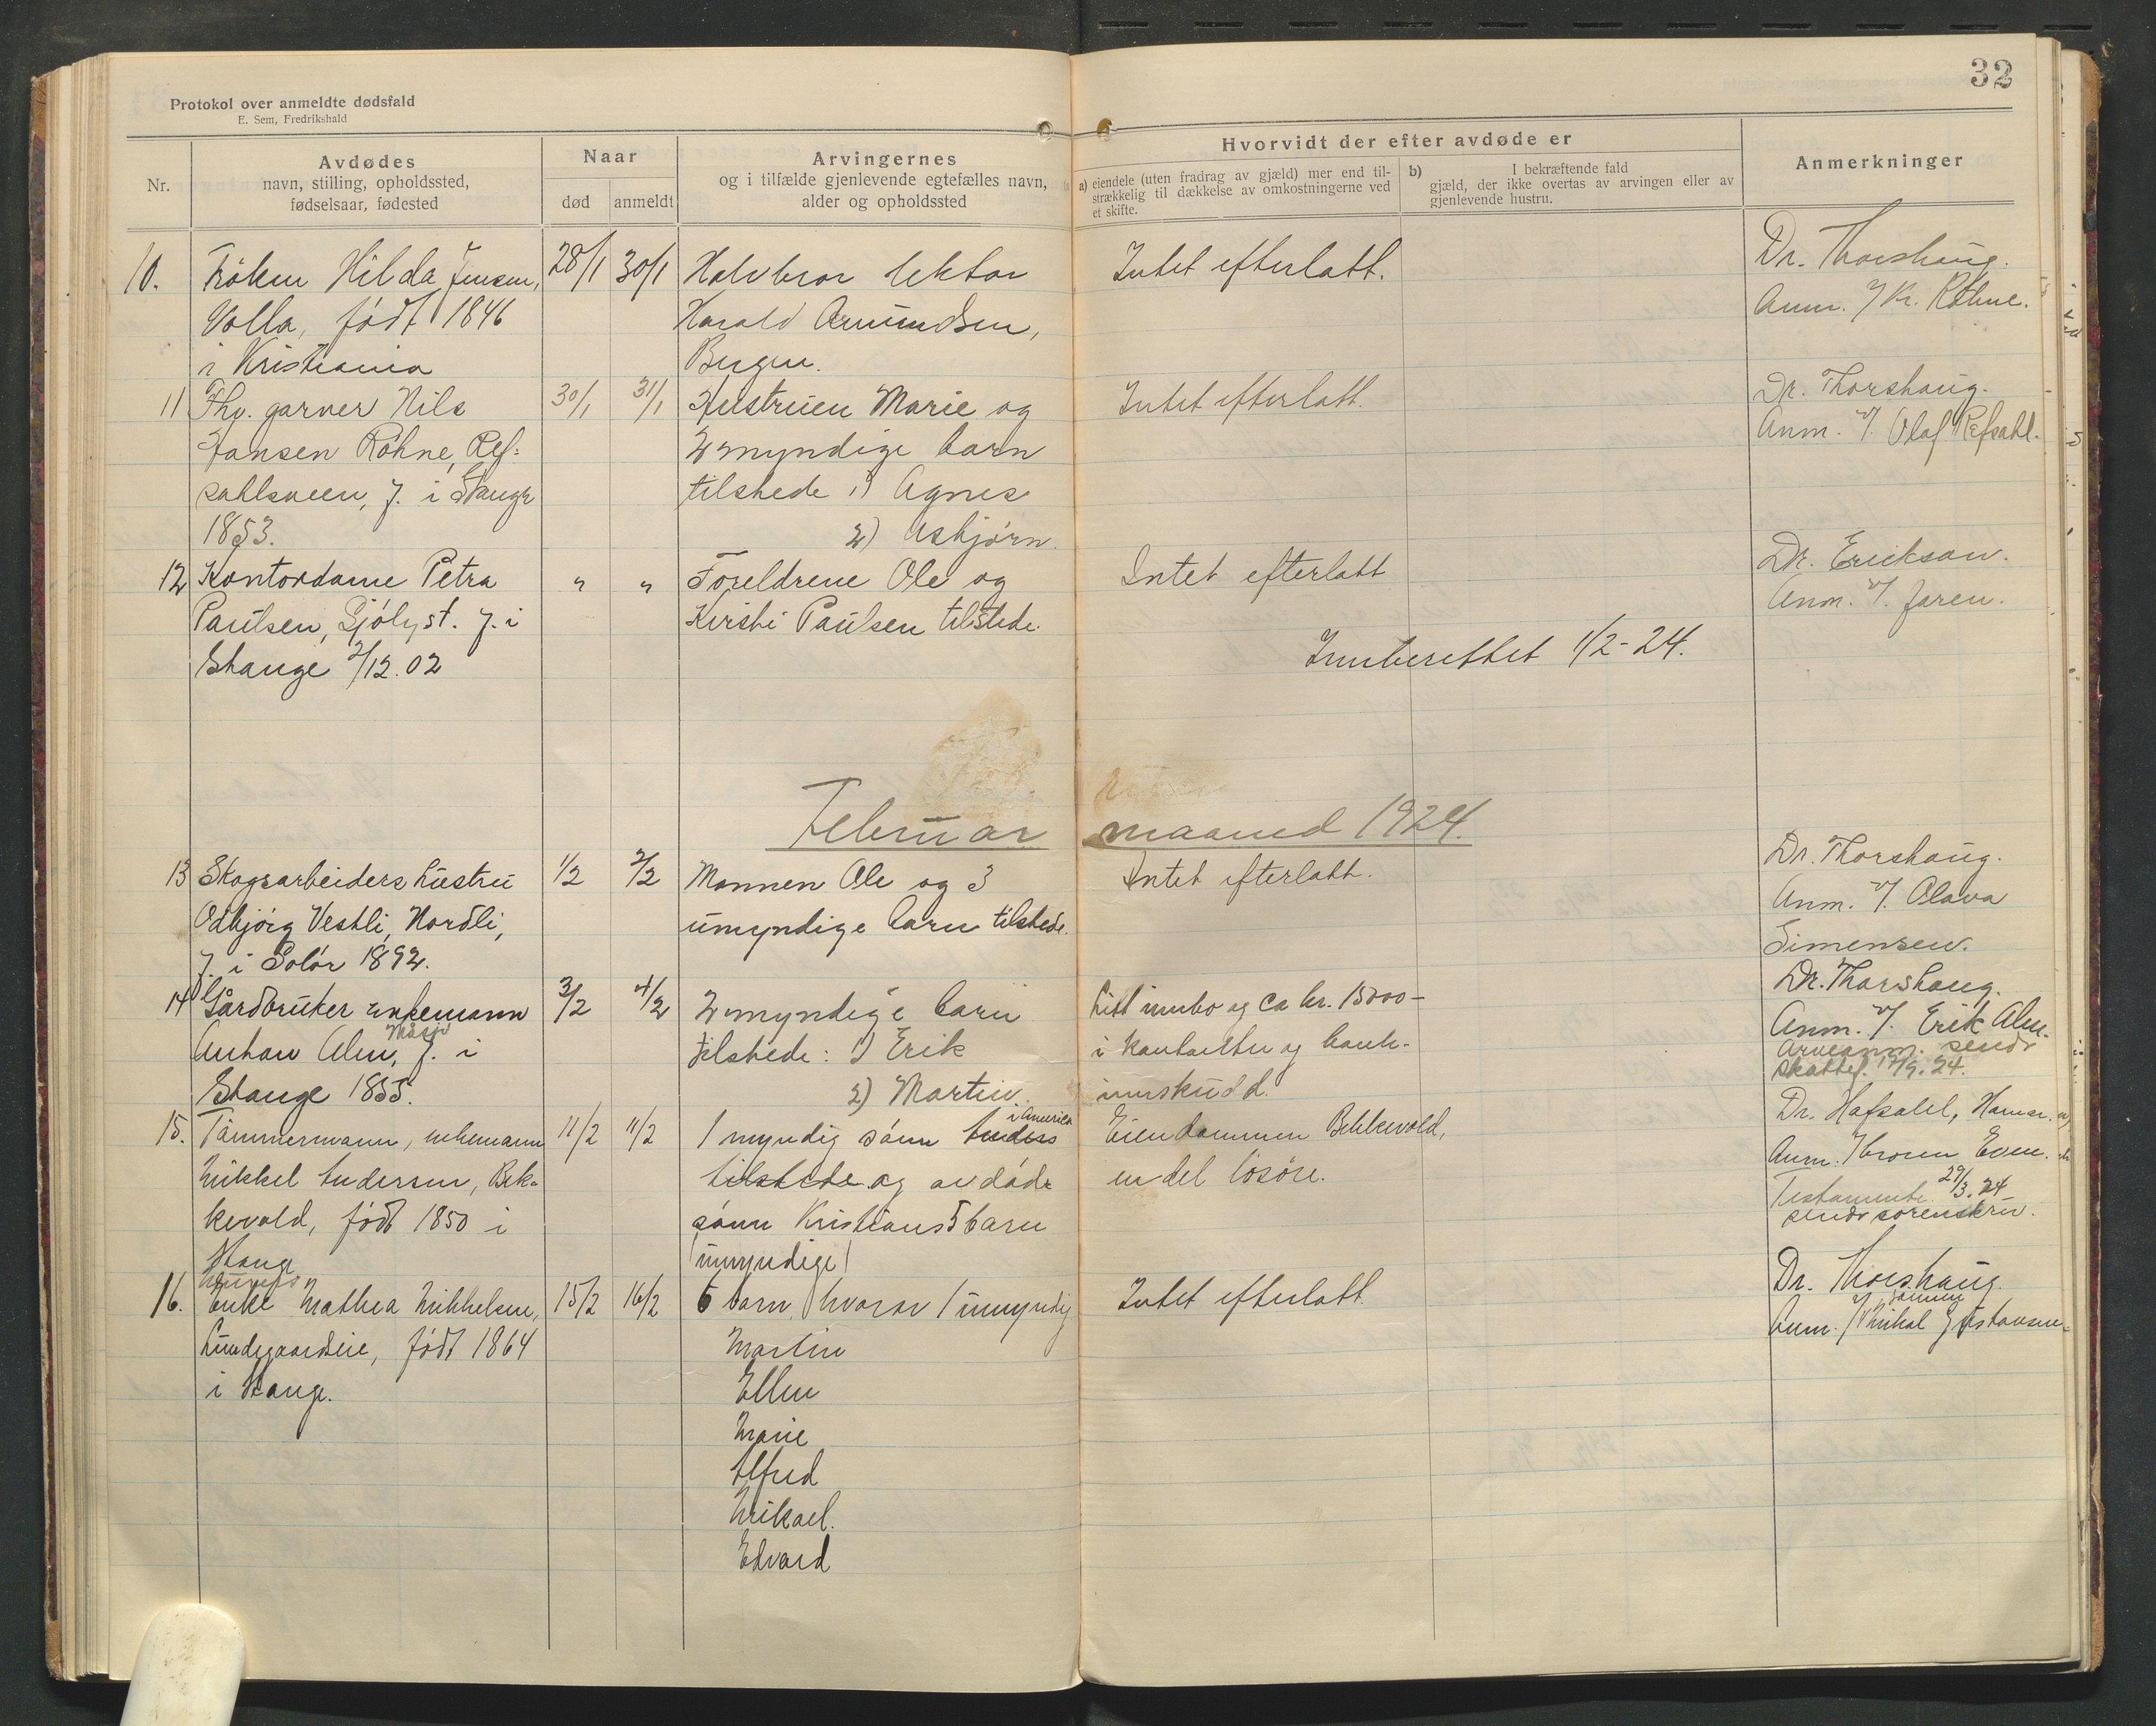 32
Protokol over anmeldte dødsfald
E. Sem, Fredrikshald
Nr.
Avdødes
navn, stilling, opholdssted,
fødselsaar, fødested
Naar
død
anmeldt
Arvingernes
og i tilfælde gjenlevende egtefælles navn,
alder og opholdssted
Hvorvidt der efter avdøde er
a) eiendele (uten fradrag av gjæld) mer end til-
strækkelig til dækkelse av omkostningerne ved
et skifte.
b) I bekræftende fald
gjæld, der ikke overtas av arvingen eller av
gjenlevende hustru.
Anmerkninger
10.
Frøken Hilda Jensen,
Volla, født 1846
i Kristiania
28/1
30/1
Halvbror lektor
Harald Amundsen,
Bergen.
Intet efterlatt.
Dr. Thorshaug.
Anm. v/ Kr. Røhne.
11
Fhv. garver Nils
Hansen Røhne, Ref-
sahlsveen, f. i Stange
1853.
30/1
31/1
Hustruen Marie og
2 myndige barn
tilstede 1) Agnes
2) Asbjørn.
Intet efterlatt.
Dr. Thorshaug.
Anm. v/. Olaf Refsahl.
12
Kontordame Petra
Paulsen, Sjølyst. f. i
Stange 2/12.02
"
"
Foreldrene Ole og
Kirsti Paulsen tilstede.
Intet efterlatt
Dr. Erickson.
Anm. v/. Jaren.
Innberettet 1/2-24.
Februar maaned 1924.
13
Skogsarbeiders hustru
Odbjørg Vestli, Nordli,
f. i Solør 1892.
1/2
2/2
Mannen Ole og 3
umyndige barn tilstede.
Intet efterlatt.
Dr. Thorshaug.
Anm. v/. Olava
Simensen.
14
Gårdbruker enkemann
Anton Alm, f. i
Stange 1855.
3/2
4/2
2 myndige barn
tilstede: 1) Erik
2) Martin.
Litt innbo og ca kr. 15000-
i kontanter og bank-
innskudd.
Dr. Thorshaug.
Anm. v/. Erik Alm.
Arveanm. sendt
skattef. 17/9.24.
15.
Tømmermann, enkemann
Mikkel Andersen, Bek-
kevold, født 1850 i
Stange
11/2
11/2
1 myndig sønn Anders i Amerika
tilstede og avdøde
sønn Kristians 5 barn
(umyndige)
Eiendommen Bekkevold,
en del løsøre.
Dr. Hafsahl, Hamar.
Anm. v/ broren Even.
Testamente 29/3.24
sendt sorenskriv.
16.
Enke Mathea Mikkelsen,
Lundgaardeie, født 1864
i Stange.
15/2
16/2
6 barn, hvorav 1 umyndig
Martin
Ellen
Marie
Alfred
Mikael.
Edvard
Intet efterlatt
Dr. Thorshaug.
Anm. v/ sønnen Mikal Gustavsen.